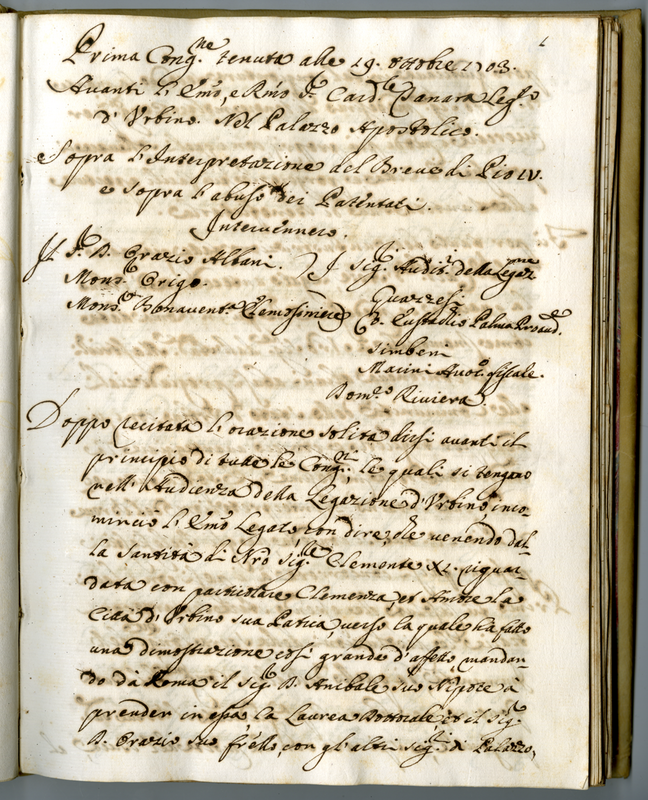 1
Prima Cong.ne tenuta alle 19. ottobre 1703.
Avanti l'Emo, e Rmo Sr. Card.le Tanara Leg.to
d'Urbino. Nel Palazzo Apostolico.
Sopra l'Interpretazione del Breve di Pio IV.
e sopra l'abuso dei Patentati.
Intervennero.
Il Sr. D. Orazio Albani. I Sig.ri Audit.ri della Legaz.ne
Mons.r Origo. Guarzesi
Mons.r Bonavent.a Elemosiniere D. Eustachio Palma
Simbeni
Macini Avoc. fiscale.
Dom.co Riviera
Doppo recitata l'orazione solita dirsi avanti il
principio di tutte le Cong.ni, le quali si tengano
nell'Audienza della Legazione d'Urbino, inco-
minciò l'Emo Legato, con dire, che venendo dal-
la Santità di Nro Sig.re Clemente XI. riguar-
data con particolare Clemenza, et Amore la
Città d'Urbino sua Patria, verso la quale ha fatto
una dimostrazione così grande d'affetto, mandan-
do da Roma il Sig.r D. Anibale suo Nipote à
prender in essa la Laurea Dottorale et il sig.r
D. Orazio suo frello, con gl'altri sig.ri di Palazzo,